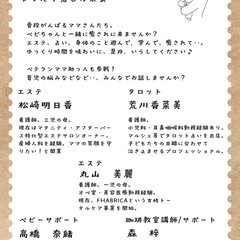 普段がんばるママさんたち、
ベビちゃんと一緒に癒されに来ませんか？
エステ、占い、身体のこと遊んで、学んで、癒されて…。
ゆっくり時間を味わいに、是非、いらしてください♪
ベテランママ助っ人も参戦！
育児の悩みなどなど…、みんなでお話しませんか？
エステ
松崎明日香
看護師、三児の母。
現在はマタニティ・アフターバー
ス特化型エステサロンオーナー。
産婦人科を経験。ママの笑顔を守
りたい！と開業
タロット
荒川香菜美
看護師。
小児科・耳鼻咽喉科勤務経験あり。
マルシェ等でタロット占いを出店。
子どもたちの出産に合わせて
泣きよませるプロフェッショナル。
エステ
丸山 美麗
看護師、一児の母。
オペ室・美容医療勤務経験。
現在、FHABRICAという女性トー
タルケア事業を開始。
ベビーサポート
高橋 奈緒
珈琲教室講師/サポート
森 梓